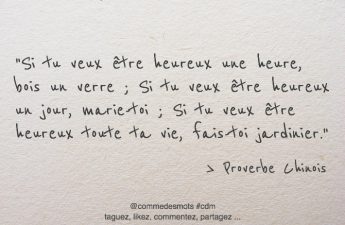 "Si tu veux être heureux une heure,
bois un verre ; Si tu veux être heureux
un jour, marie-toi ; Si tu veux être
heureux toute ta vie, fais-toi jardinier."
> Proverbe Chinois
@commedesmots #cdm
taguez, likez, commentez, partagez ...